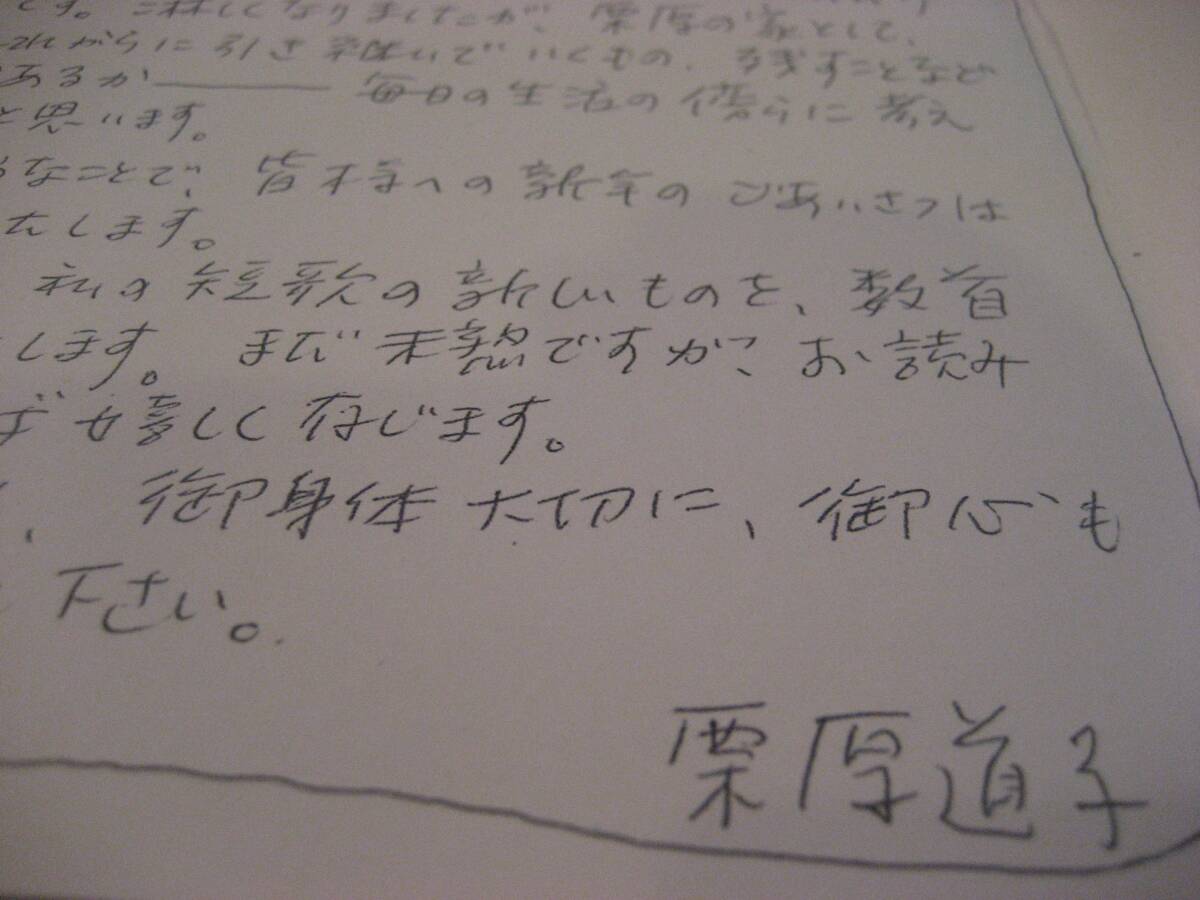 す。淋しくなりましたが、栗原の家として、
これからに引き継いでいくもの、残すことなど
あるか――― 毎日の生活の傍らに考え
と思います。
なことで、皆様への新年のごあいさつは
たします。
私の短歌の新しいものを、数首
します。まだ未認ですが、お読み
ば嬉しく存じます。
、御身体大切に、御心も
下さい。
栗原道子